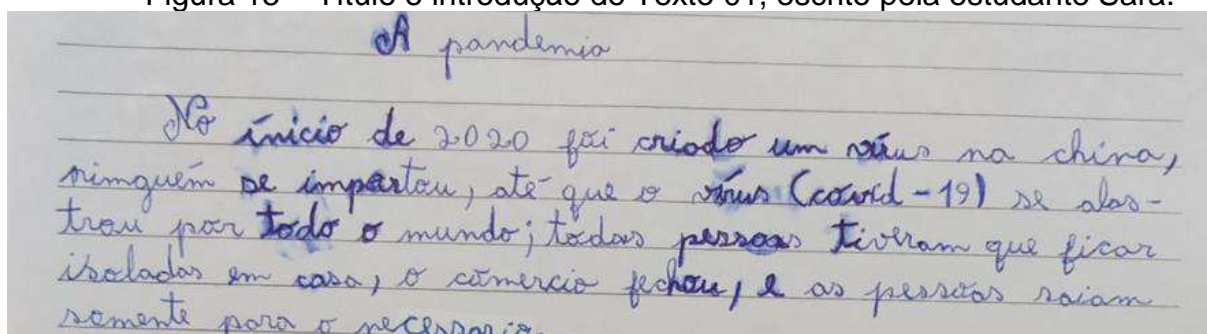 Figura 18 – Título e introdução do Texto 01, escrito pela estudante Sara.
A pandemia
No ínicio de 2020 foi criado um vírus na china,
ninguém se importou, até que o vírus (covid-19) se alas-
trou por todo o mundo; todas pessoas tiveram que ficar
isoladas em casa, o comercio fechou, e as pessoas saiam
somente para o necessario.